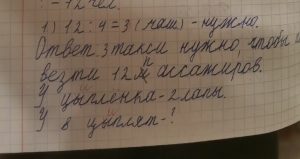 - 12 чел.
1) 12 : 4 = 3 (маш) - нужно.
Ответ 3 такси нужно, чтобы
везти 12 пассажиров.
У цыпленка - 2 лапы.
У 8 цыплят - ?